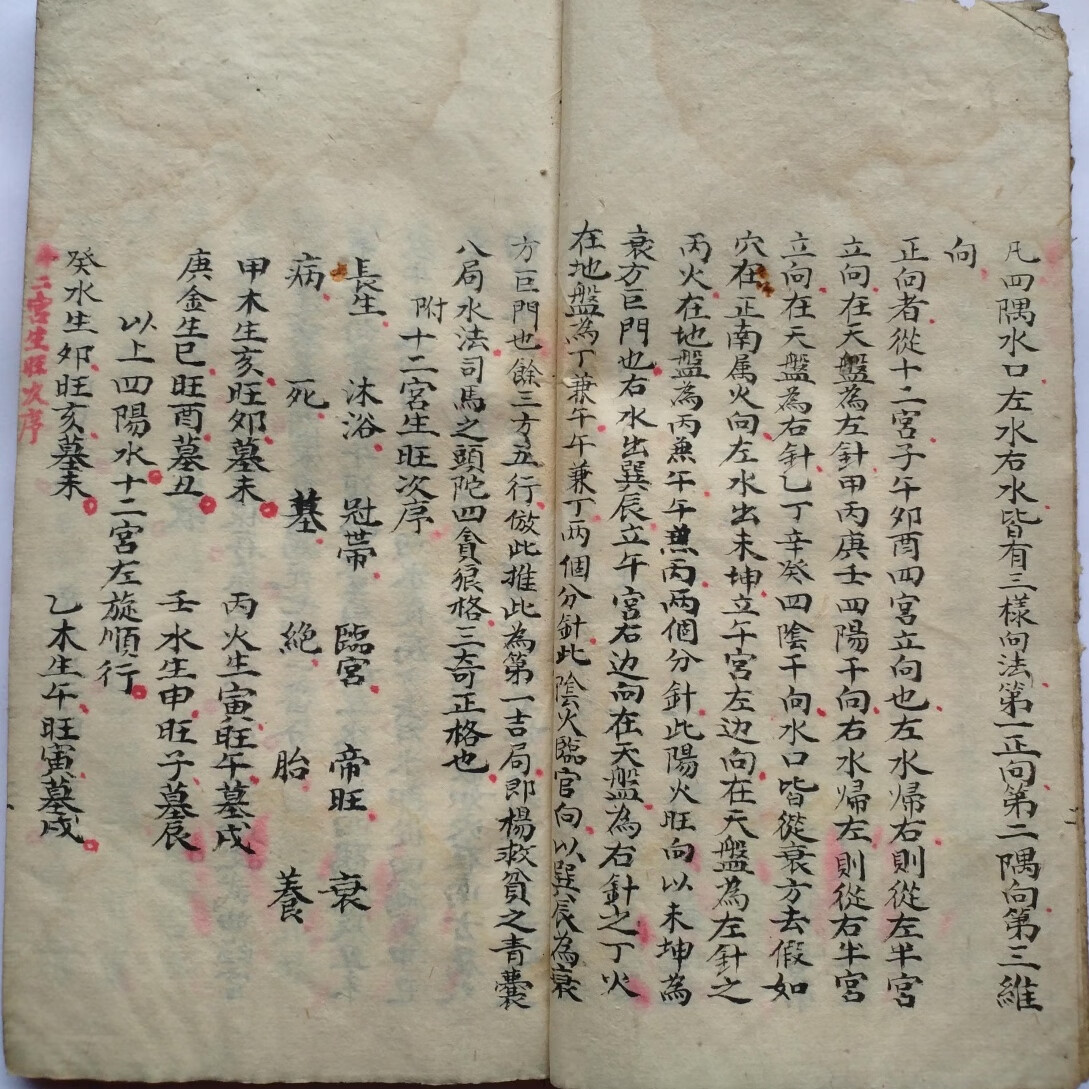 凡四隅水口左水右水皆有三樣向法第一正向第二隅向第三維
向
正向者從十二宮子午夘酉四宮立向也左水歸右則從左半宮
立向在天盤為左針甲丙庚壬四陽干向右水歸左則從右半宮
立向在天盤為右針乙丁辛癸四陰干向水口皆從衰方去假如
穴在正南属火向左水出未坤立午宮左边向在天盤為左針之
丙火在地盤為丙兼午午兼丙兩個分針此陽火旺向以未坤為
衰方巨門也右水出巽辰立午宮右边向在天盤為右針之丁火
在地盤為丁兼午午兼丁兩個分針此陰火臨官向以巽辰為衰
方巨門也餘三方五行倣此推此為第一吉局即楊救貧之青囊
八局水法司馬之頭陀四貪狼格三奇正格也
附十二宮生旺次序
長生 沐浴 冠帶 臨宮 帝旺 衰
病 死 墓 絕 胎 養
甲木生亥旺夘墓未 丙火生寅旺午墓戌
庚金生巳旺酉墓丑 壬水生申旺子墓辰
以上四陽水十二宮左旋順行
癸水生夘旺亥墓未 乙木生午旺寅墓戌
十二宮生旺次序